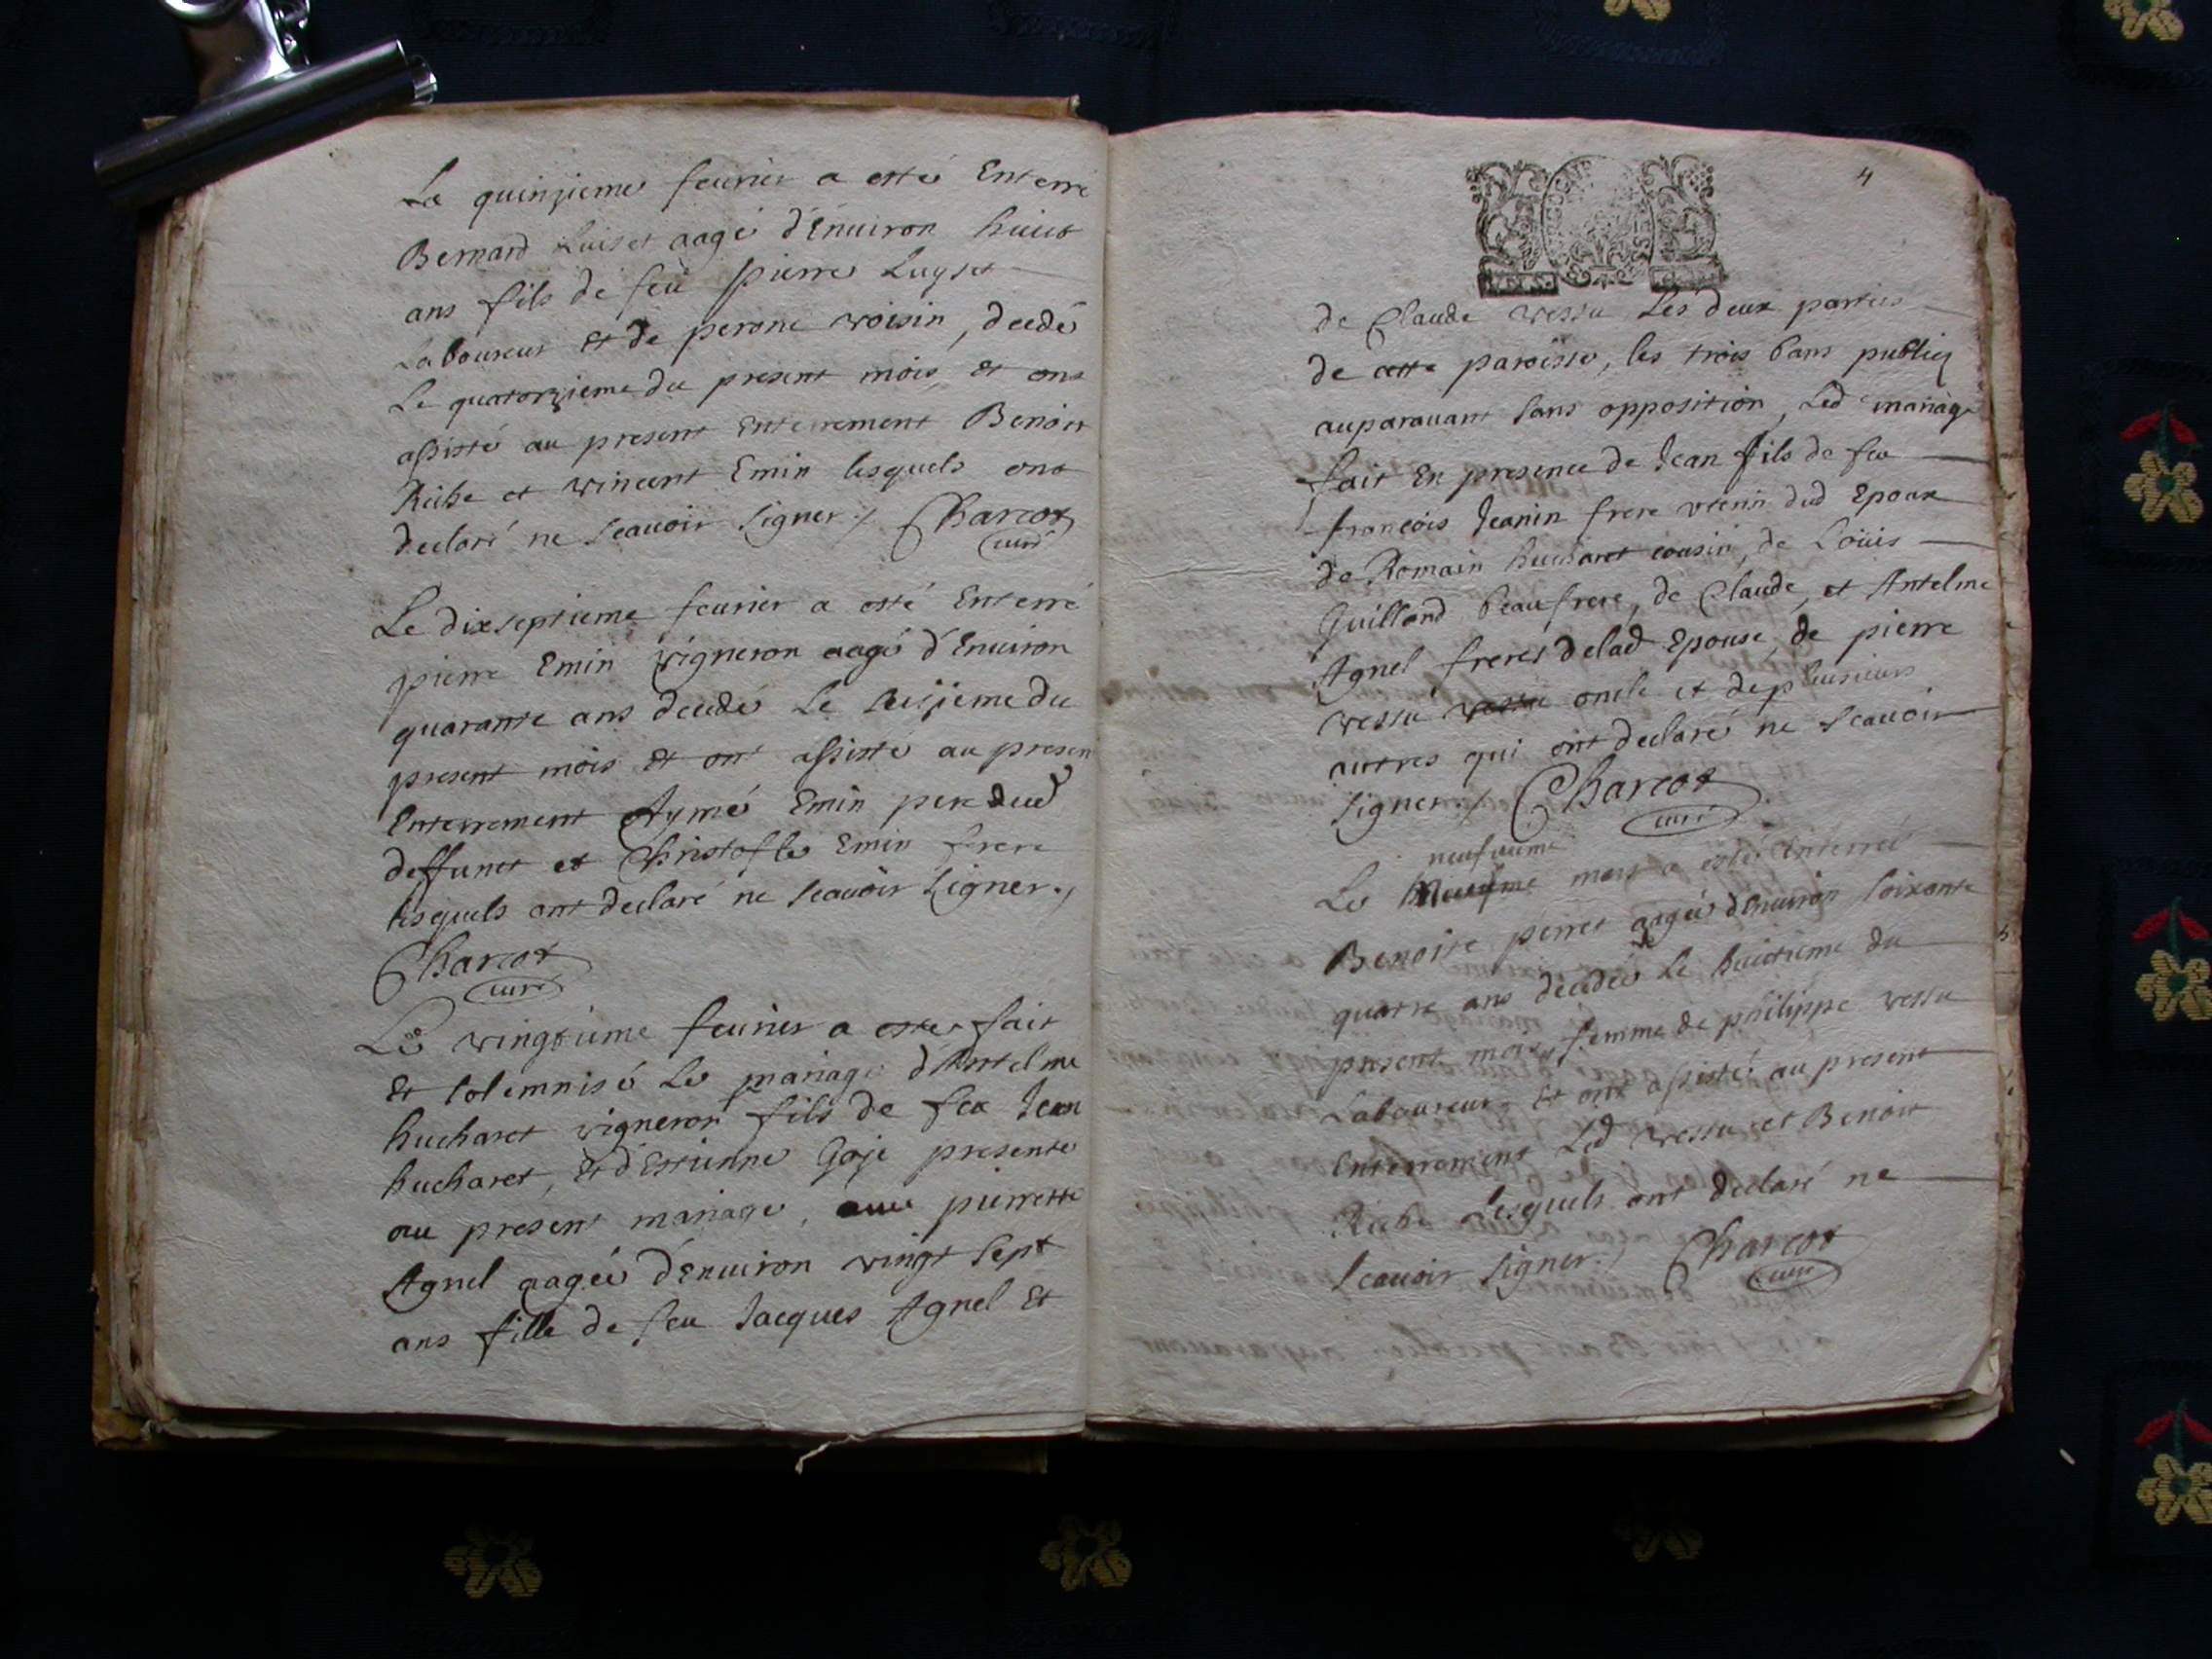 Le quinzieme feurier a esté Enterré
Bernard Luiset aagé d'Enuiron huict
ans fils de feu pierre Luyset
Laboureur et de perone voisin, decedé
Le quatorzieme du present mois, et ont
assisté au present Enterrement Benoit
Riche et vincent Emin lesquels ont
declaré ne scauoir signer ./ Charcot
curé
Le dixseptieme feurier a esté Enterré
pierre Emin vigneron aagé d'Enuiron
quarante ans decedé Le seizieme du
present mois et ont assisté au present
Enterrement Aymé Emin pere dud
deffunct et Christofle Emin frere
lesquels ont declaré ne scauoir signer ./
Charcot
curé
Le vingtieme feurier a esté fait
Et solemnisé Le mariage d'Antelme
hucharet vigneron fils de feu Jean
hucharet, Et d'Estienne Goje presente
au present mariage, auec pierrette
Agnel aagée d'Enuiron vingt sept
ans fille de feu Jacques Agnel Et
4
de Claude vessu Les deux parties
de cette paroisse, les trois bans publiez
auparauant sans opposition, Led mariage
fait En presence de Jean fils de feu
francois Jeanin frere uterin dud Epoux
de Romain hucharet cousin, de Loüis
Guilland beaufrere, de Claude, et Antelme
Agnel freres delad Epouse, de pierre
vessu oncle et de plusieurs
autres qui ont declaré ne scauoir
signer ./ Charcot
curé
neufuieme
Le mars a esté Enterrée
Benoite perret aagée d'Enuiron soixante
quatre ans decedée Le huictieme du
present mois, femme de philippe vessu
Laboureur, Et ont assisté au present
Enterrement Led vessu et Benoit
Riche Lesquels ont declaré ne
scauoir signer ./ Charcot
curé